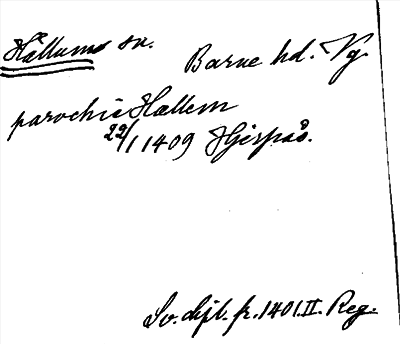 Hällums sn. Barne hd. Vg
parochie Hællem
22/1 1409 Hjerpås.
Sv. dipl. fr. 1401. II. Reg.